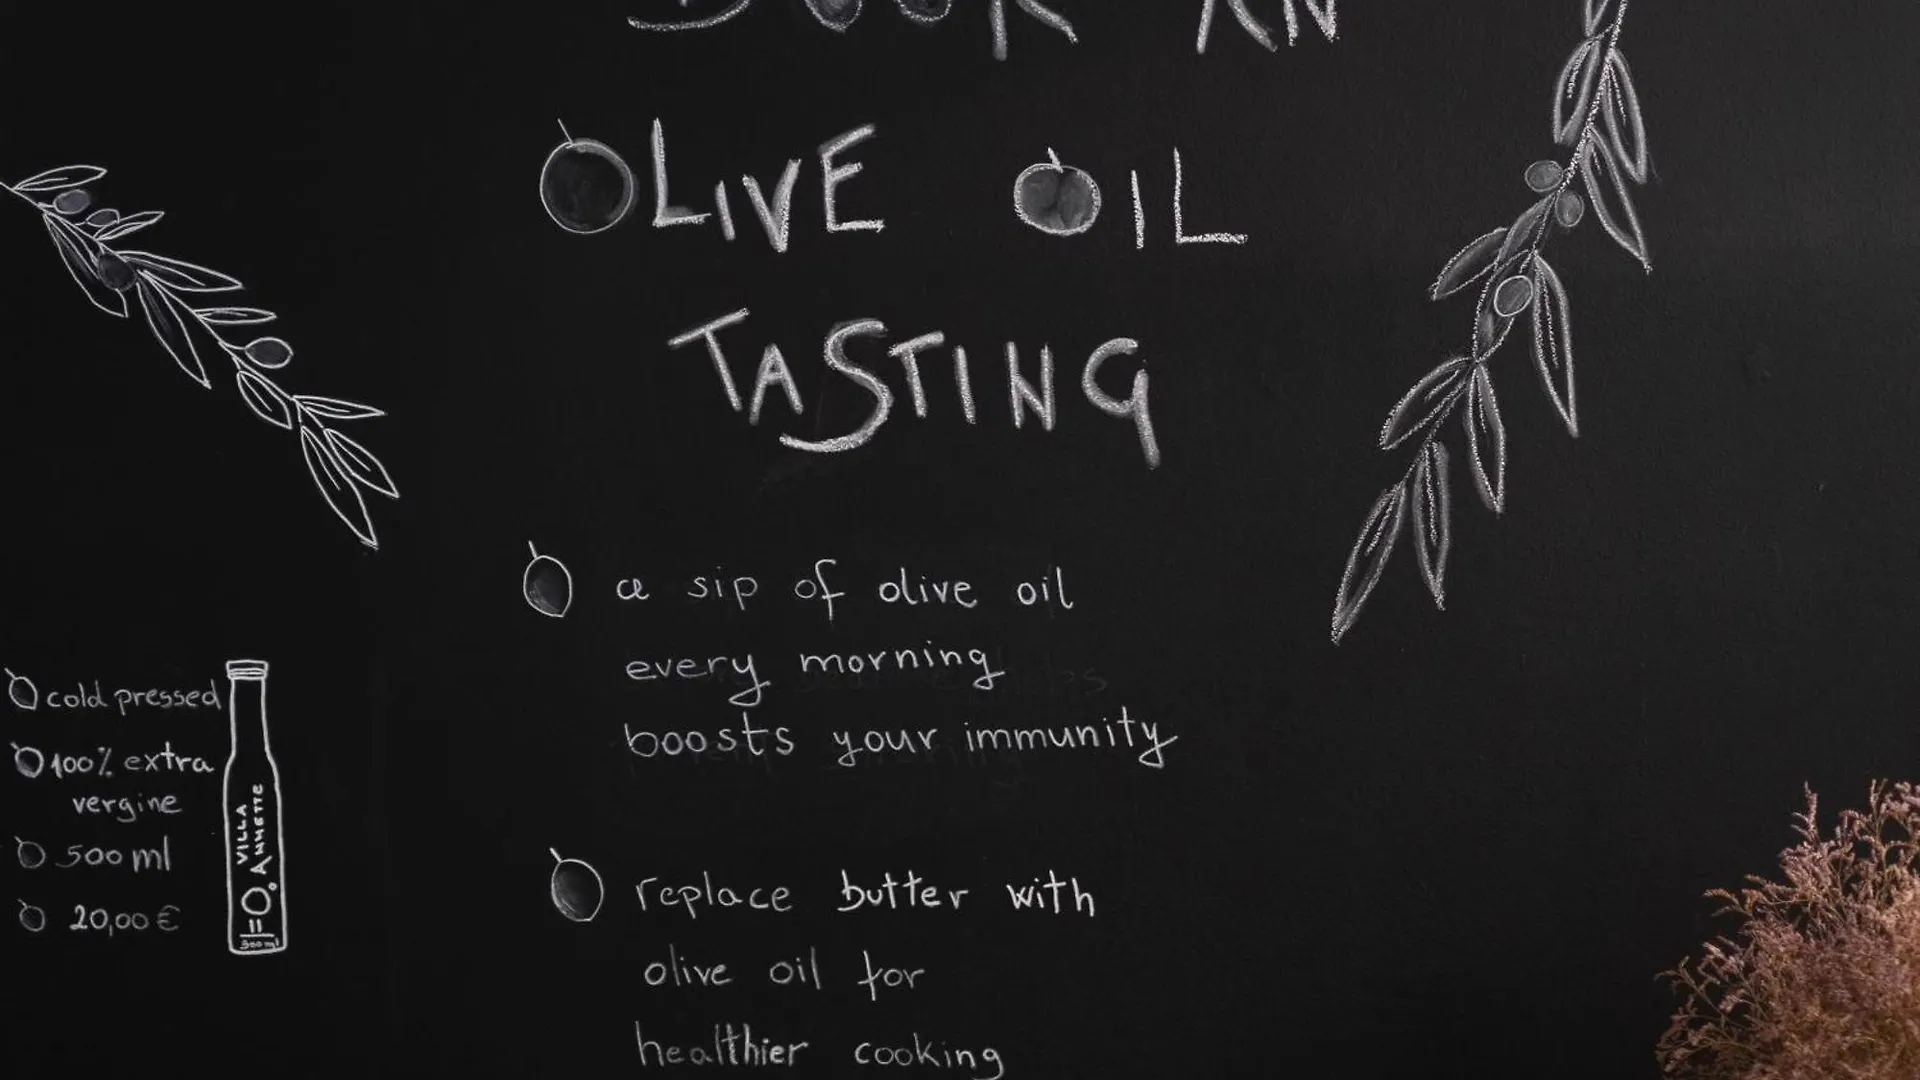 BOOK AN
OLIVE OIL
TASTING
a sip of olive oil
every morning
boosts your immunity
replace butter with
olive oil for
healthier cooking
cold pressed
100% extra
vergine
500 ml
20,00 €
VILLA
ANNETTE
500 ml